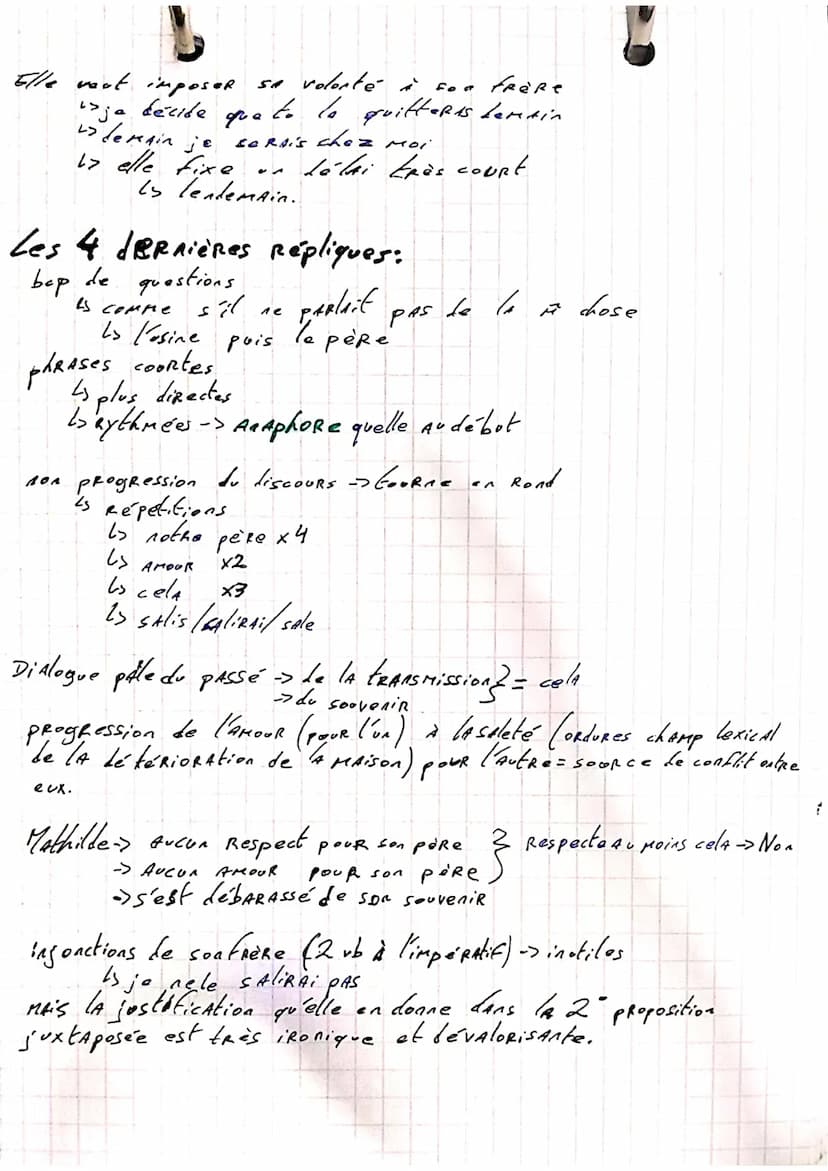 Elle veut imposer sa volonté à son frère
↳ je décide que tu la quitteras demain
↳ demain je serais chez moi
↳ elle fixe un délai très court
↳ lendemain.
Les 4 dernières répliques:
bcp de questions
↳ comme s'il ne parlait pas de la m̂ chose
↳ l'usine puis le père
phrases courtes
↳ plus directes
↳ rythmées -> Anaphore quelle au début
non progression du discours -> tourne en rond
↳ Répétitions
↳ notre père x4
↳ Amour x2
↳ cela x3
↳ salis/salirai/sale
Dialogue pâle du passé -> de la transmission } = cela
-> du souvenir
progression de l'amour (pour l'un) à la saleté (ordures champ lexical
de la détérioration de la maison) pour l'autre = source de conflit entre
eux.
Mathilde -> aucun Respect pour son père } Respecte au moins cela -> Non
-> Aucun amour pour son père
-> s'est débarassé de son souvenir
injonctions de son frère (2 vb à l'impératif) -> inutiles
↳ je ne le salirai pas
Mais la justification qu'elle en donne dans la 2° proposition
juxtaposée est très ironique et dévalorisante.